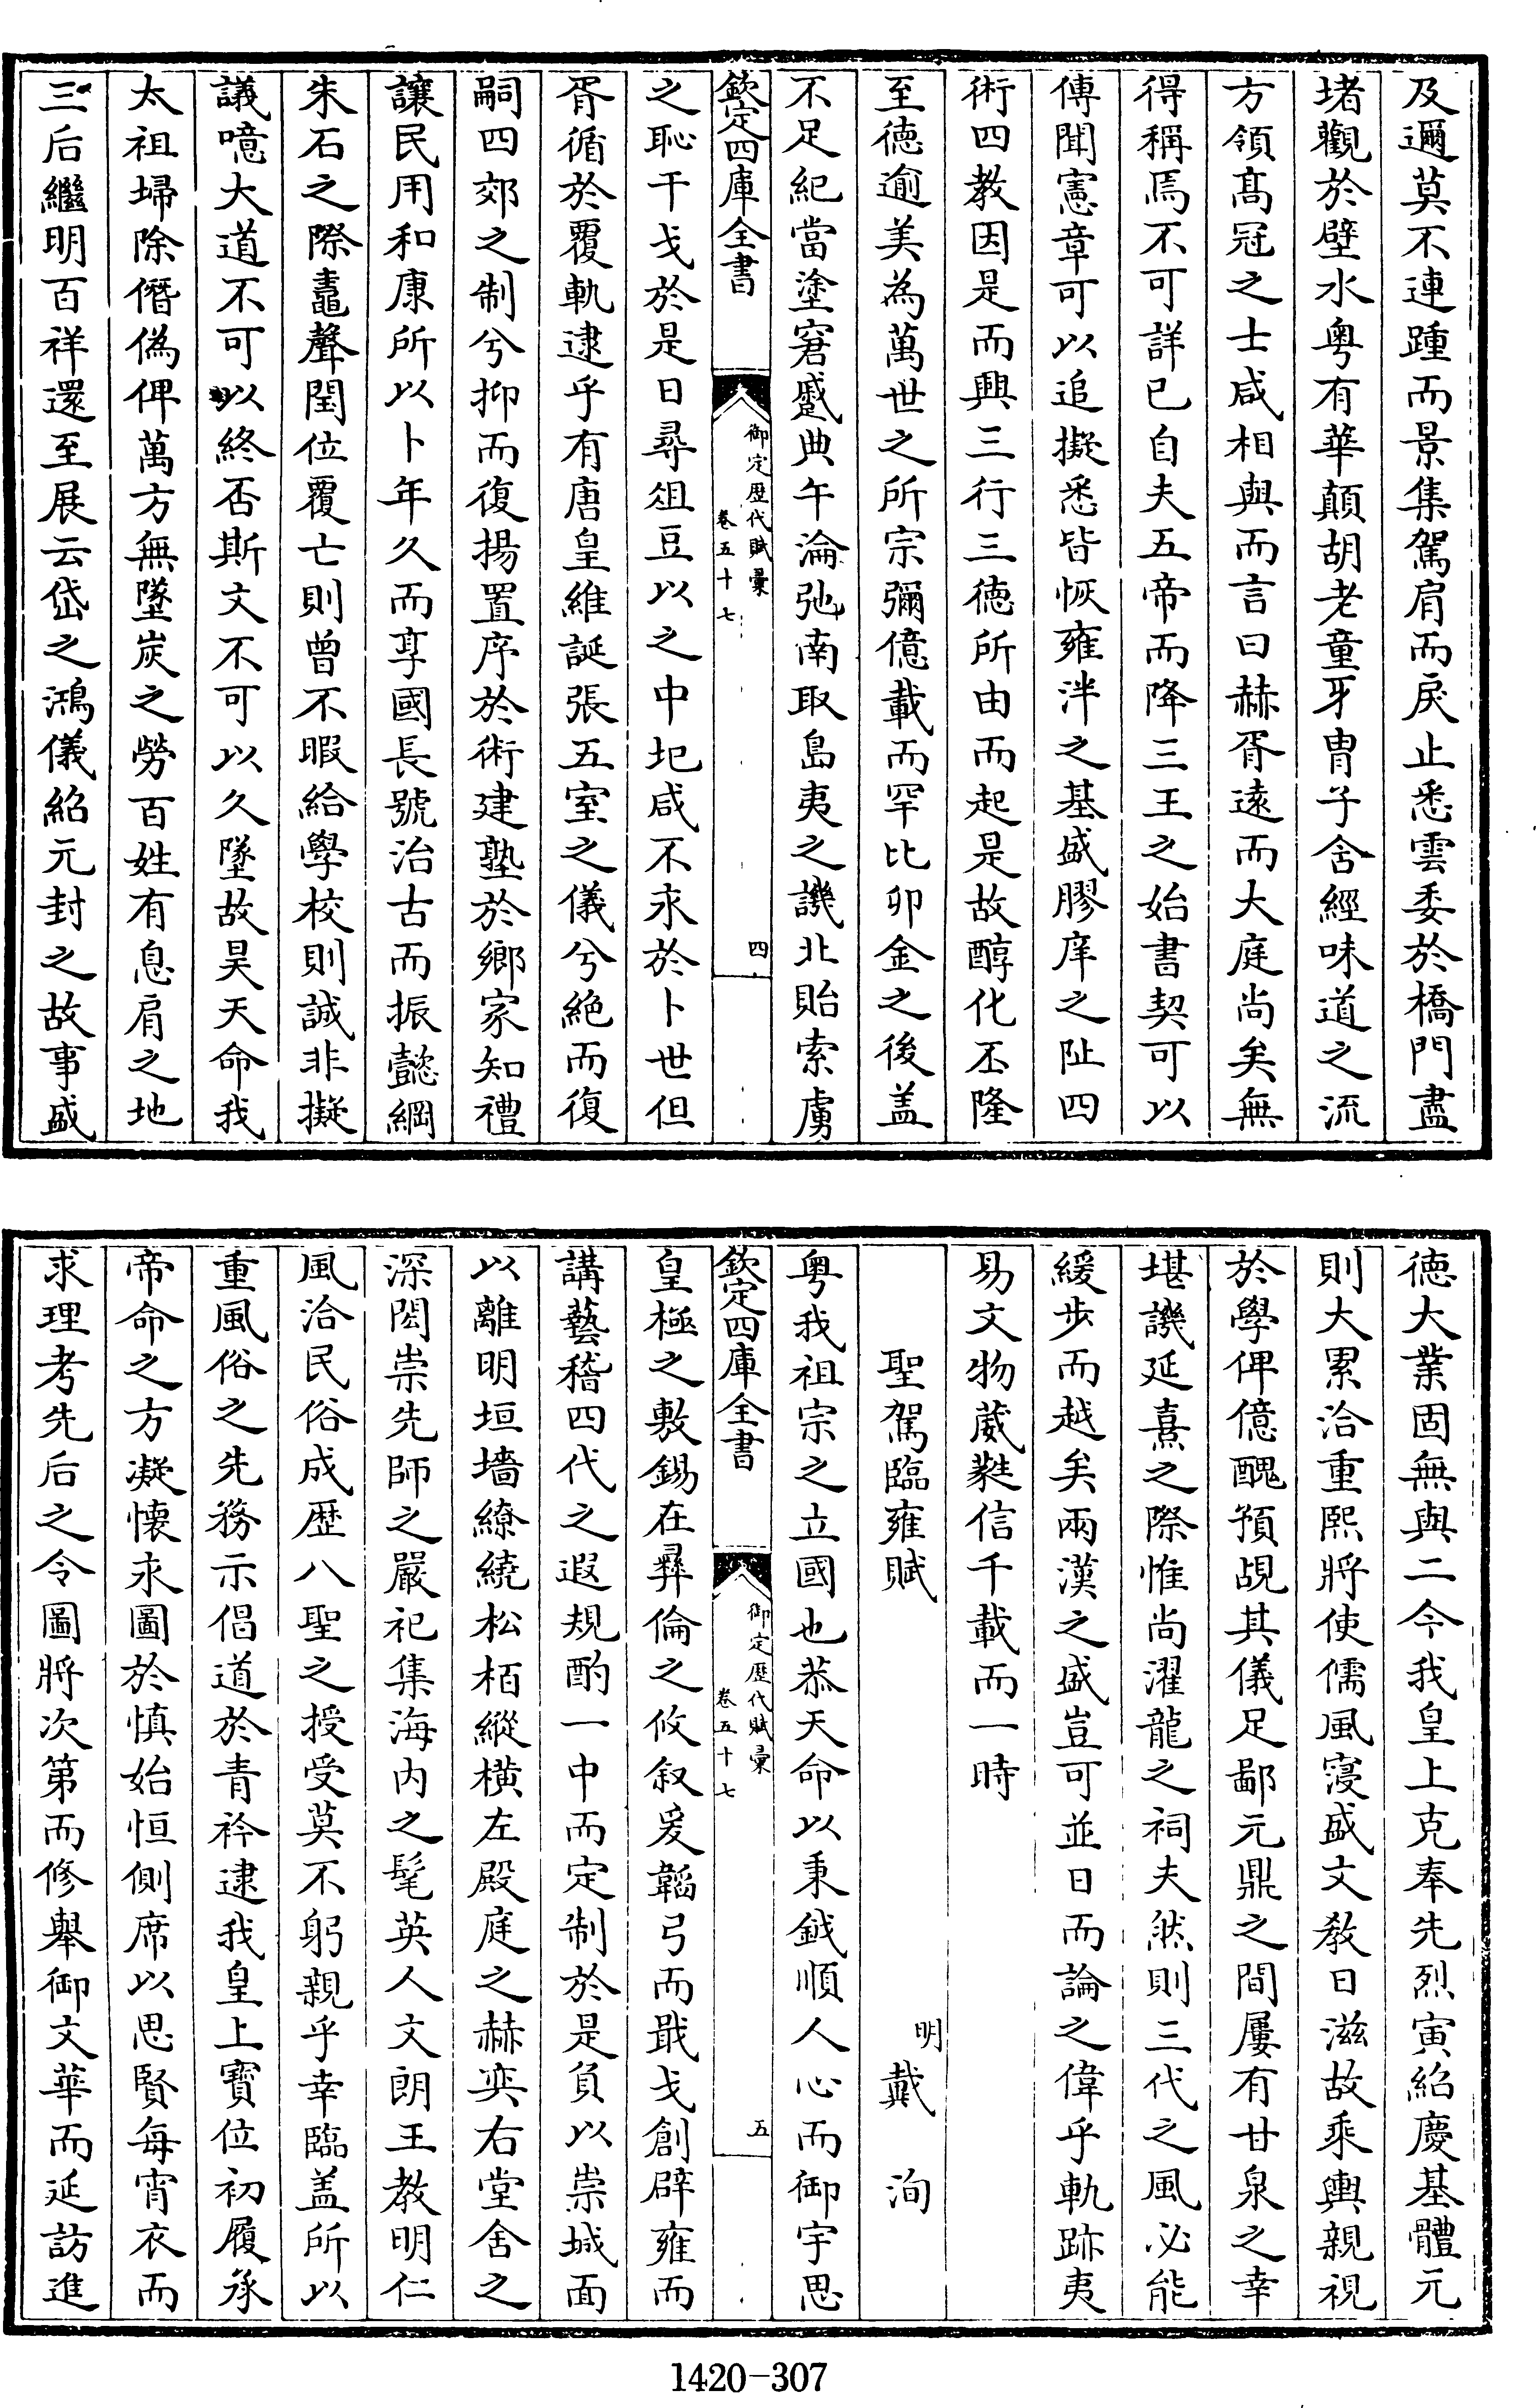 及邇莫不連踵而景集駕肩而戾止悉雲委於橋門盡
堵觀於壁水粤有華顛胡老童牙胄子含經味道之流
方領髙冠之士咸相與而言曰赫胥逺而大庭尚矣無
得稱焉不可詳已自夫五帝而降三王之始書契可以
傳聞憲章可以追擬悉皆恢雍泮之基盛膠庠之阯四
術四教因是而興三行三徳所由而起是故醇化丕隆
至徳逾美為萬世之所宗彌億載而罕比卯金之後盖
不足紀當塗窘蹙典午淪弛南取島夷之譏北貽索虜
欽定四庫全書
御定歴代賦彙
卷五十七
四
之恥干戈於是日尋俎豆以之中圮咸不永於卜世但
胥循於覆軌逮乎有唐皇維誕張五室之儀兮絶而復
嗣四郊之制兮抑而復揚置序於術建塾於鄉家知禮
讓民用和康所以卜年久而享國長號治古而振懿綱
朱石之際鼃聲閏位覆亡則曾不暇給學校則誠非擬
議噫大道不可以終否斯文不可以久墜故昊天命我
太祖埽除僭偽俾萬方無墜炭之勞百姓有息肩之地
三后繼明百祥還至展云岱之鴻儀紹元封之故事盛
徳大業固無與二今我皇上克奉先烈寅紹慶基體元
則大累洽重熙將使儒風寖盛文教日滋故乘輿親視
於學俾億醜預覘其儀足鄙元鼎之間屢有甘泉之幸
堪譏延熹之際惟尚濯龍之祠夫然則三代之風必能
緩步而越矣兩漢之盛豈可並日而論之偉乎軌跡夷
易文物葳蕤信千載而一時
聖駕臨雍賦
明
戴洵
粤我祖宗之立國也恭天命以秉鉞順人心而御宇思
欽定四庫全書
御定歴代賦彙
卷五十七
五
皇極之敷錫在彞倫之攸叙爰韜弓而戢戈創辟雍而
講藝稽四代之遐規酌一中而定制於是負以崇城面
以離明垣墻繚繞松栢縱橫左殿庭之赫奕右堂舍之
深閎崇先師之嚴祀集海内之髦英人文朗王教明仁
風洽民俗成歴八聖之授受莫不躬親乎幸臨盖所以
重風俗之先務示倡道於青衿逮我皇上寳位初履承
帝命之方凝懐永圖於慎始恒側席以思賢每宵衣而
求理考先后之令圖將次第而修舉御文華而延訪進
1420-307